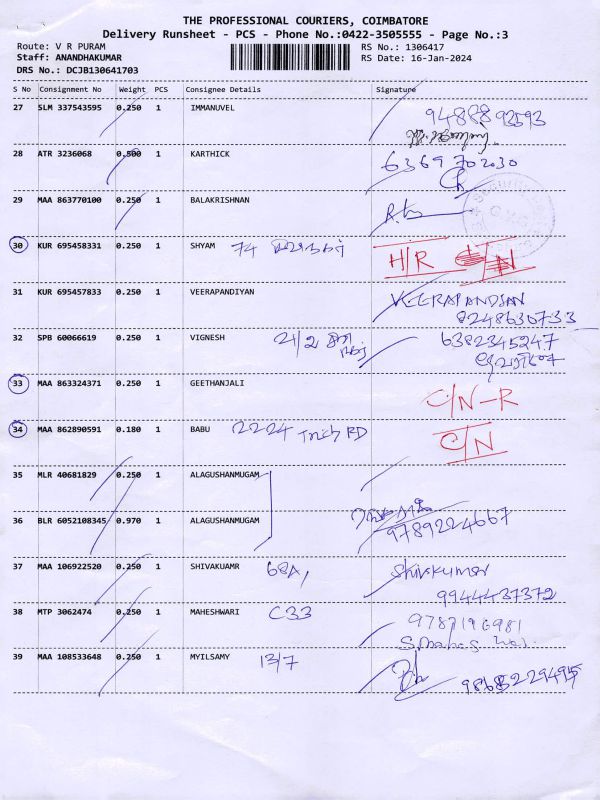 THE PROFESSIONAL COURIERS, COIMBATORE
Delivery Runsheet - PCS - Phone No.:0422-3505555 - Page No.:3
Route: V R PURAM
RS No.: 1306417
Staff: ANANDHAKUMAR
RS Date: 16-Jan-2024
DRS No.: DCJB130641703
S No Consignment No Weight PCS Consignee Details Signature
27 SLM 337543595 0.250 1 IMMANUVEL
28 ATR 3236068 0.500 1 KARTHICK 6369702030
29 MAA 863770100 0.250 1 BALAKRISHNAN
30 KUR 695458331 0.250 1 SHYAM 74 H/R C/N
31 KUR 695457833 0.250 1 VEERAPANDIYAN VEERAPANDSAN
8248630733
32 SPB 60066619 0.250 1 VIGNESH 21/2 6382345247
33 MAA 863324371 0.250 1 GEETHANJALI C/N-R
34 MAA 862890591 0.180 1 BABU 2224 Trichy RD C/N
35 MLR 40681829 0.250 1 ALAGUSHANMUGAM
36 BLR 6052108345 0.970 1 ALAGUSHANMUGAM
9789224667
37 MAA 106922520 0.250 1 SHIVAKUAMR 68A, Shivkumar
9944437372
38 MTP 3062474 0.250 1 MAHESHWARI C33 9787196981
39 MAA 108533648 0.250 1 MYILSAMY 13/7